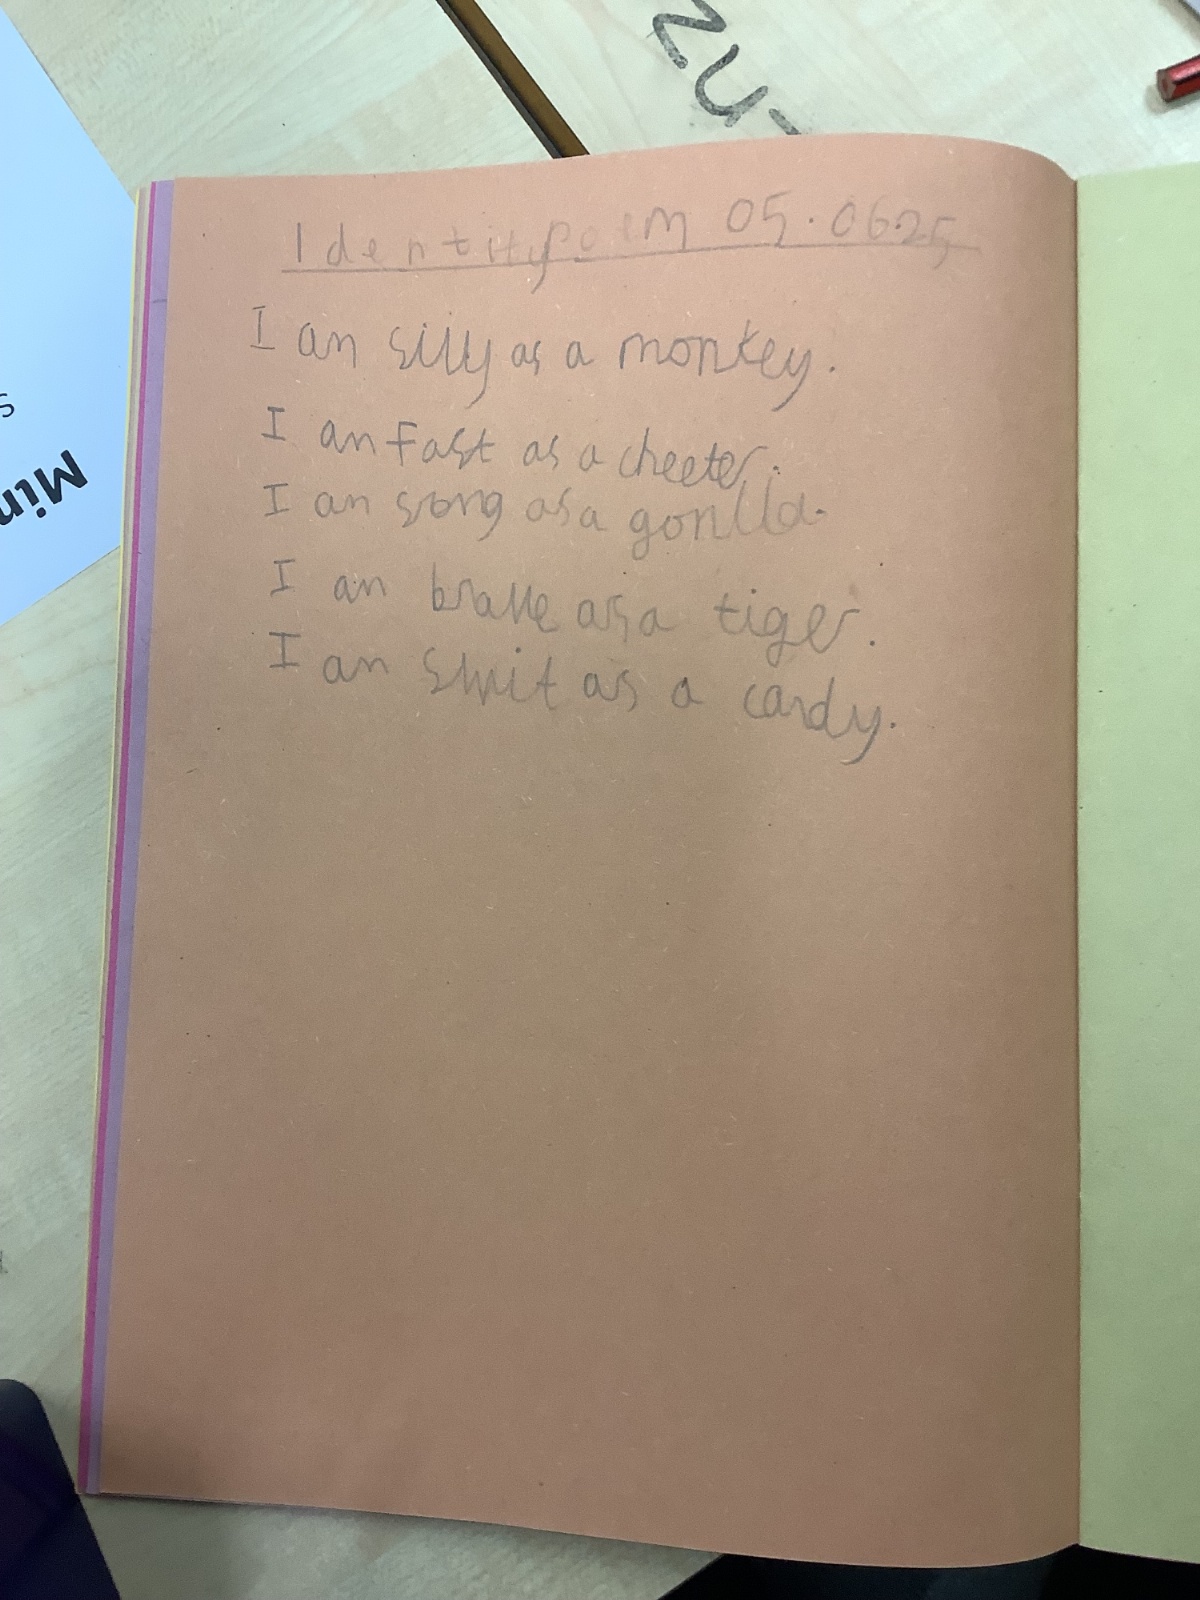 ZU-
s
Min
Identity poem 05.0625
I an silly as a monkey.
I an fast as a cheeter.
I an srong as a gorilla.
I an brave as a tiger.
I an swit as a candy.